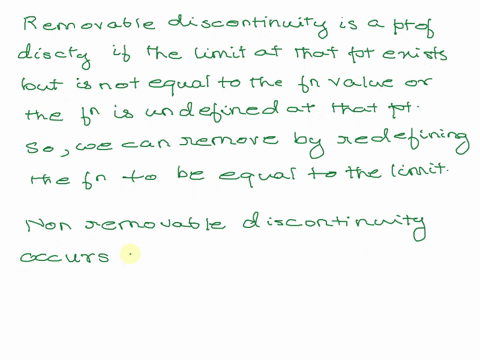 Removable discontinuity is a pt of
discty if the limit at that pt exists
but is not equal to the fn value or
the fn is undefined at that pt.
So, we can remove by redefining
the fn to be equal to the limit.
Non removable discontinuity
occurs